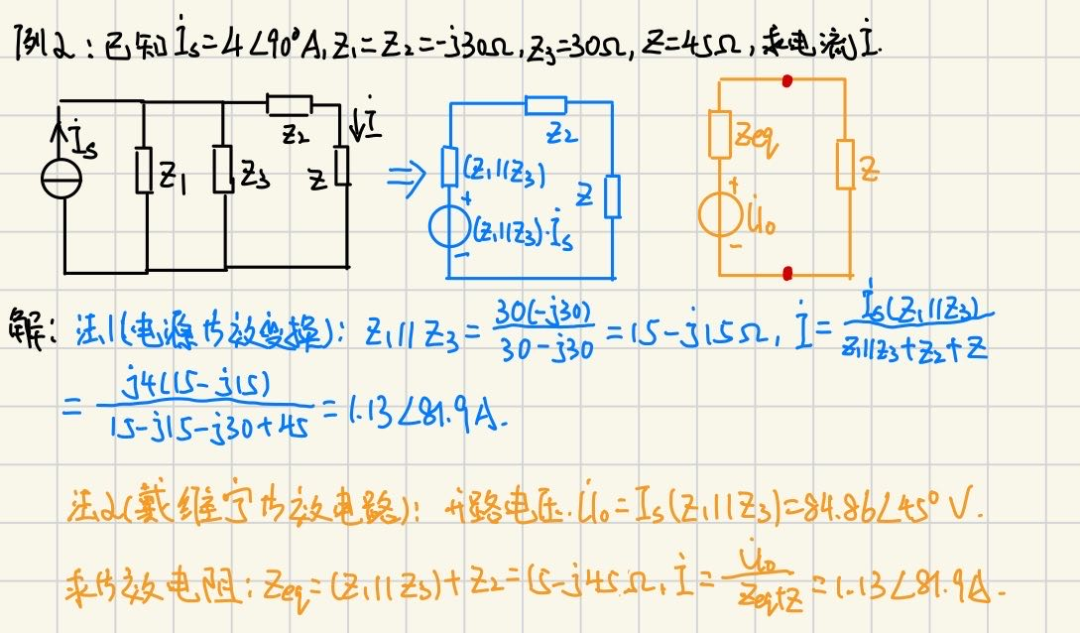 例2：已知İs=4∠90°A,Z1=Z2=-j30Ω,Z3=30Ω,Z=45Ω,求电流İ.
İs Z1 Z3 Z2 Z İ
⇒ (Z1||Z3) + (Z1||Z3)·İs - Z2 Z
Zeq + U̇0 - Z
解：法1(电源等效变换)：Z1||Z3=30(-j30)/30-j30=15-j15Ω, İ=İs(Z1||Z3)/Z1||Z3+Z2+Z
=j4(15-j15)/15-j15-j30+45=1.13∠81.9A.
法2(戴维宁等效电路)：开路电压.U̇0=Is(Z1||Z3)=84.86∠45°V.
求等效电阻：Zeq=(Z1||Z3)+Z2=15-j45Ω,İ=U̇0/Zeq+Z=1.13∠81.9A.